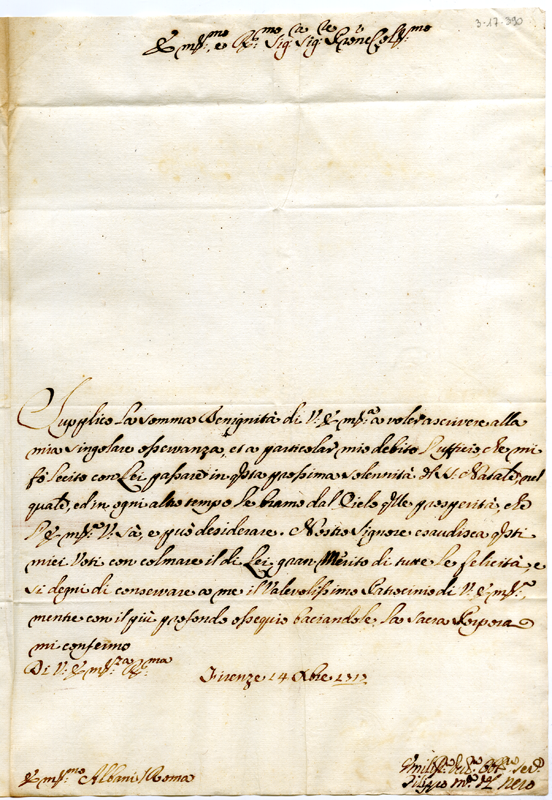 3-17-390
Em.mo, e R.mo Sig.r Sig.r P.rone Col.mo
Supplico la somma Benignità di V. Em.za a voler ascrivere alla
mia singolare osservanza, et a particolar mio debito l'ufficio, che mi
fò lecito con Lei passare in q.sta prossima solennità del S. Natale, nel
quale, ed in ogni altro tempo le bramo dal Cielo q.lle prosperità, che
l'Em.za V. sà, e può desiderare. Nostro Signore esaudisca q.sti
miei Voti con colmare il di Lei gran Merito di tutte le felicità, e
si degni di conservare a me il Valevolissimo Patrocinio di V. Em.za
mentre con il più profondo ossequio baciandole la Sacra Porpora
mi confermo
Di V. Em.za R.ma
Firenze 14 Xbre
Em.mo Albani Roma
Umiliss.o Obb.o Ser.e
Filippo M.a del Nero